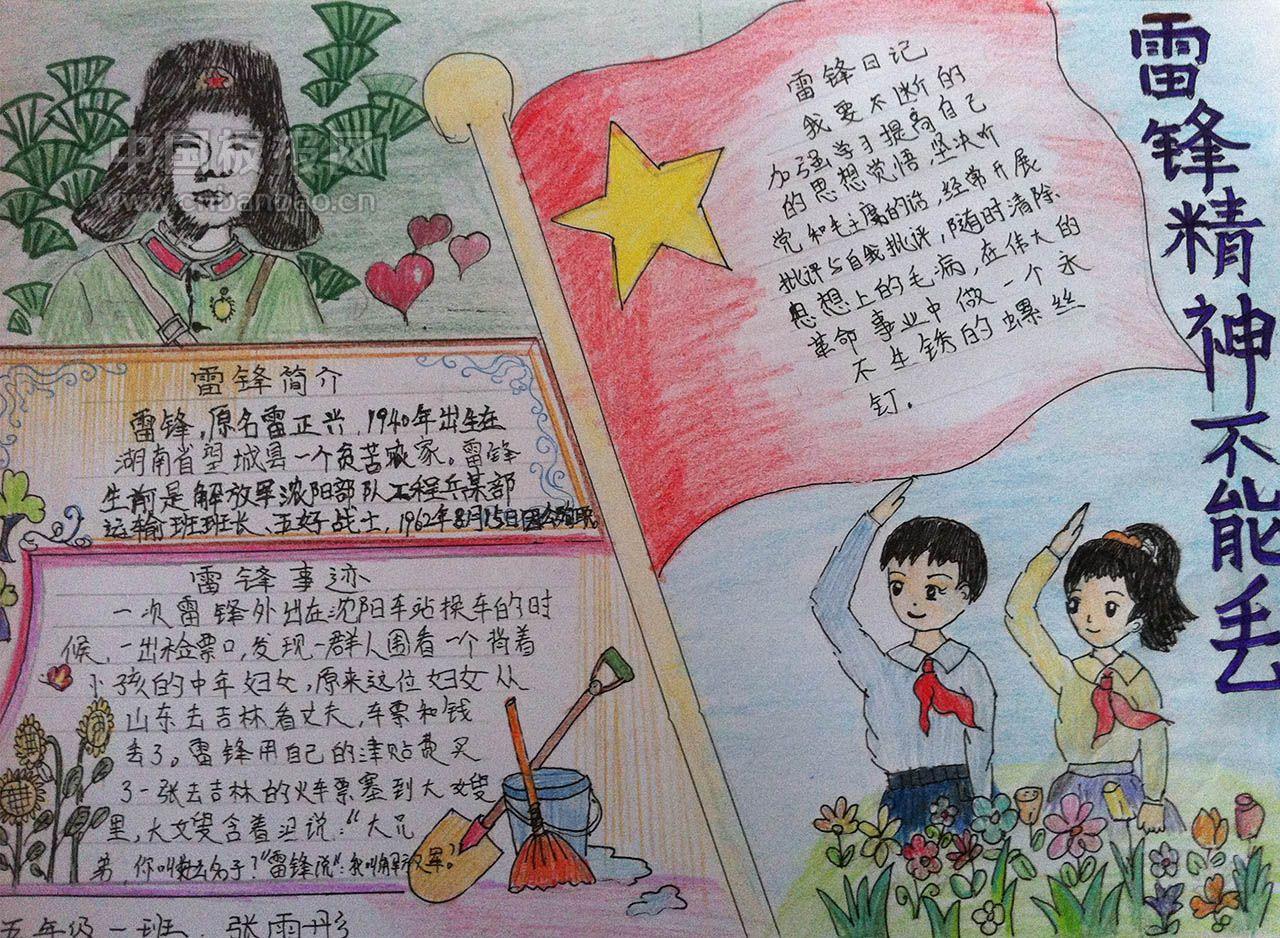 雷锋精神不能丢
中国板报网
cnbanbao.cn
雷锋日记
我要不断的
加强学习提高自己
的思想觉悟,坚决听
党和毛主席的话,经常开展
批评与自我批评,随时清除
思想上的毛病,在伟大的
革命事业中做一个永
不生锈的螺丝
钉.
雷锋简介
雷锋,原名雷正兴,1940年出生在
湖南省望城县一个贫苦农家。雷锋
生前是解放军沈阳部队工程兵某部
运输班班长、五好战士,1962年8月15日因公殉职
雷锋事迹
一次雷锋外出在沈阳车站换车的时
候,一出检票口,发现一群人围着一个背着
小孩的中年妇女,原来这位妇女从
山东去吉林看丈夫,车票和钱
丢了。雷锋用自己的津贴费买
了一张去吉林的火车票塞到大嫂
里,大嫂含着泪说:“大兄
弟,你叫什么名子?”雷锋说“:我叫解放军。”
五年级一班 张雨彤